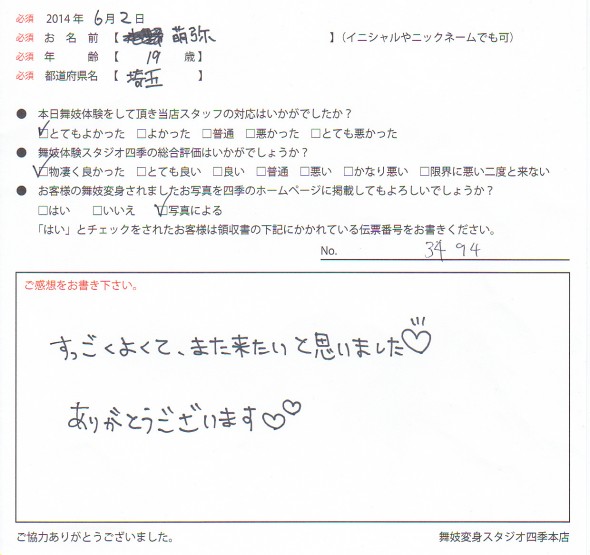 必須 2014年 6月 2日
必須 お名前【 萌弥 】（イニシャルやニックネームでも可）
必須 年齢【 19 歳】
必須 都道府県名【 埼玉 】
● 本日舞妓体験をして頂き当店スタッフの対応はいかがでしたか？
☑とてもよかった □よかった □普通 □悪かった □とても悪かった
● 舞妓体験スタジオ四季の総合評価はいかがでしょうか？
☑物凄く良かった □とても良い □良い □普通 □悪い □かなり悪い □限界に悪い二度と来ない
● お客様の舞妓変身されましたお写真を四季のホームページに掲載してもよろしいでしょうか？
□はい □いいえ ☑写真による
「はい」とチェックをされたお客様は領収書の下記にかかれている伝票番号をお書きください。
No. 3494
ご感想をお書き下さい。
すっごくよくて、また来たいと思いました♡
ありがとうございます♡♡
ご協力ありがとうございました。 舞妓変身スタジオ四季本店